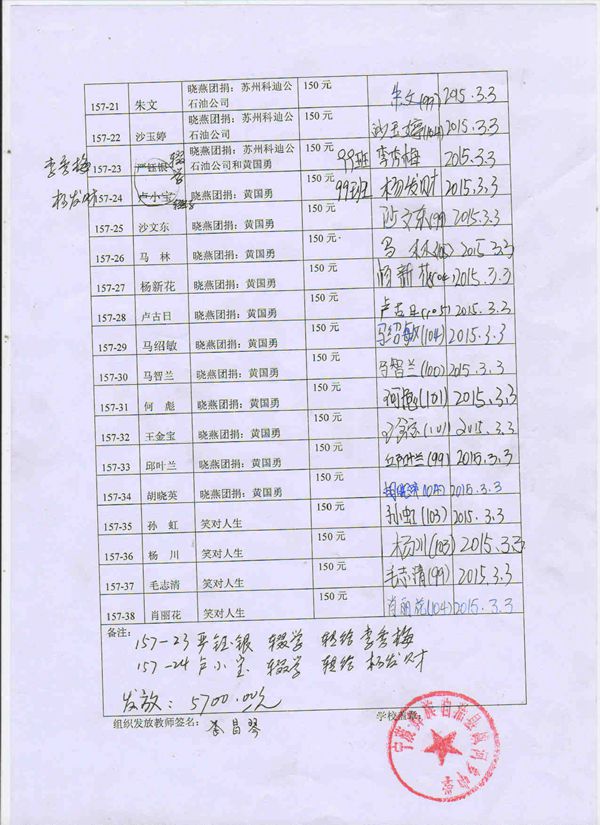 157-21 朱文 晓燕团捐：苏州科迪公石油公司 150元 朱文(99) 2015.3.3
157-22 沙玉婷 晓燕团捐：苏州科迪公石油公司 150元 沙玉婷(104) 2015.3.3
李秀梅 157-23 严钰银 辍学 晓燕团捐：苏州科迪公石油公司和黄国勇 150元 99班 李秀梅 2015.3.3
杨发财 157-24 卢小宝 辍学 晓燕团捐：黄国勇 150元 99班 杨发财 2015.3.3
157-25 沙文东 晓燕团捐：黄国勇 150元 沙文东(99) 2015.3.3
157-26 马 林 晓燕团捐：黄国勇 150元 马 林 2015.3.3
157-27 杨新花 晓燕团捐：黄国勇 150元 杨新花(104) 2015.3.3
157-28 卢古日 晓燕团捐：黄国勇 150元 卢古日(105) 2015.3.3
157-29 马绍敏 晓燕团捐：黄国勇 150元 马绍敏(104) 2015.3.3
157-30 马智兰 晓燕团捐：黄国勇 150元 马智兰(100) 2015.3.3
157-31 何 彪 晓燕团捐：黄国勇 150元 何彪(101) 2015.3.3
157-32 王金宝 晓燕团捐：黄国勇 150元 王金宝(101) 2015.3.3
157-33 邱叶兰 晓燕团捐：黄国勇 150元 邱叶兰(99) 2015.3.3
157-34 胡晓英 晓燕团捐：黄国勇 150元 2015.3.3
157-35 孙 虹 笑对人生 150元 孙虹(103) 2015.3.3
157-36 杨 川 笑对人生 150元 杨川(103) 2015.3.3
157-37 毛志清 笑对人生 150元 毛志清(99) 2015.3.3
157-38 肖丽花 笑对人生 150元 肖丽花(104) 2015.3.3
备注：
157-23 严钰银 辍学 转给 李秀梅
157-24 卢小宝 辍学 转给 杨发财
发放：5700.00元
组织发放教师签名： 学校盖章：
宁蒗彝族自治县 乡中学